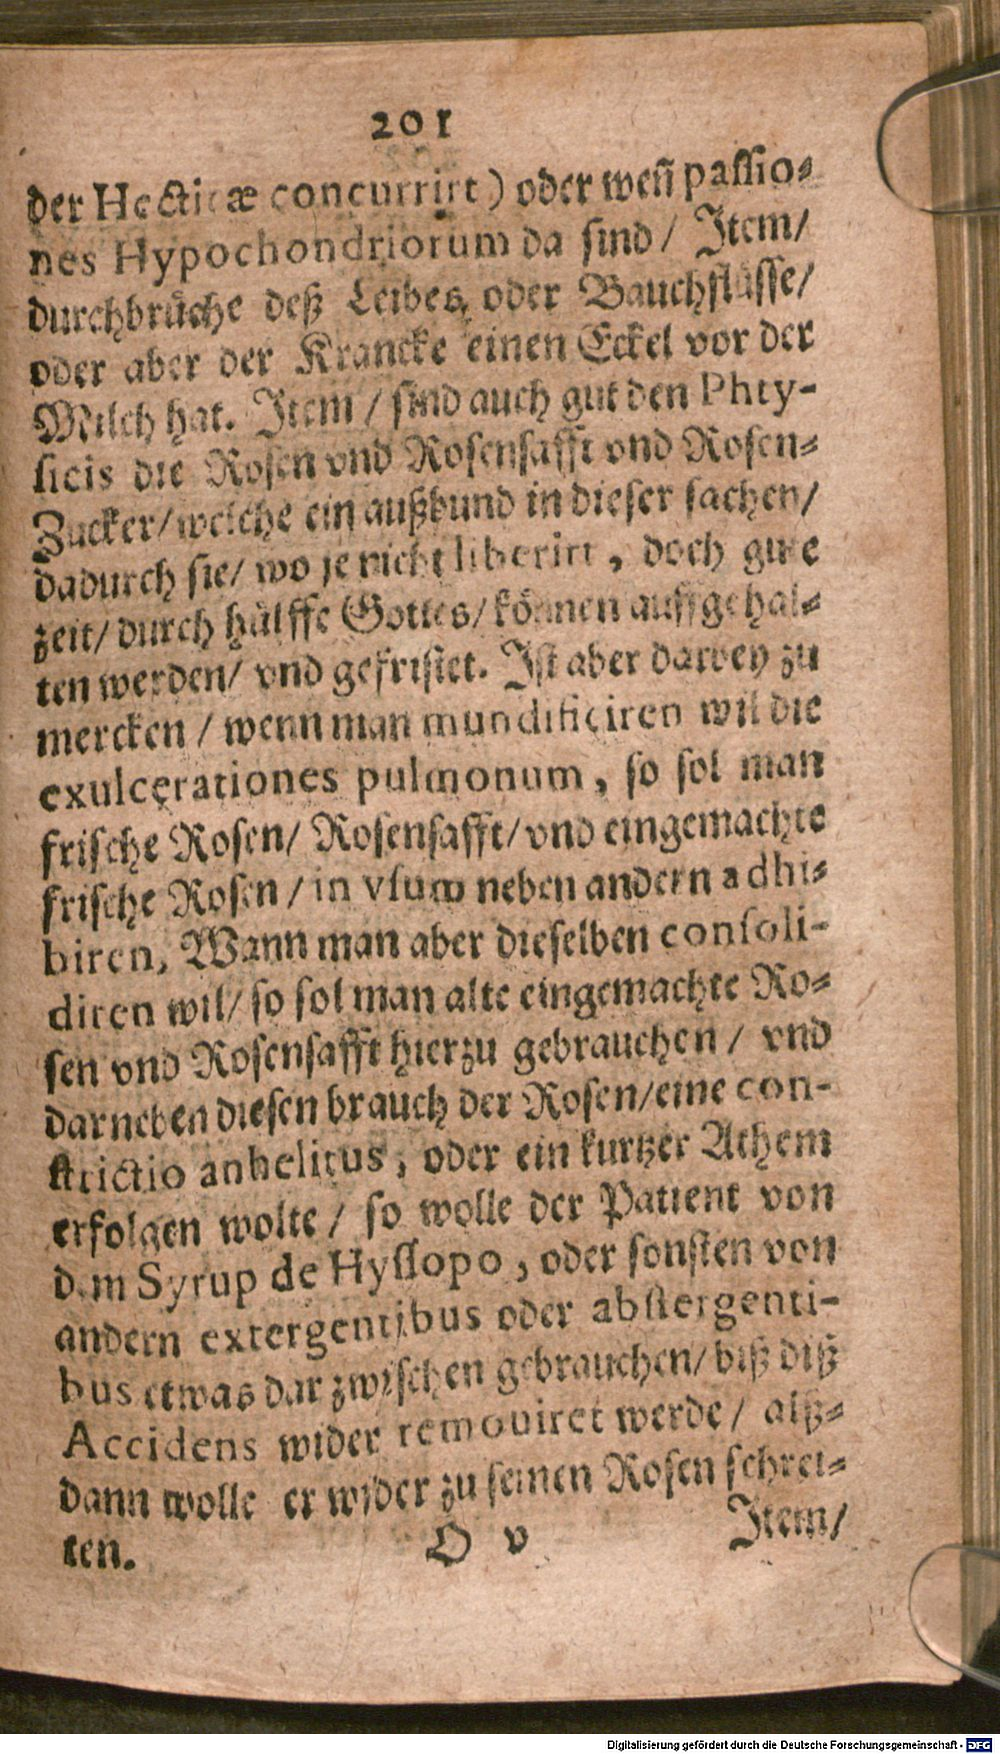 201
der Hecticæ concurrirt) oder weñ passio-
nes Hypochondriorum da sind / Item/
durchbrüche deß Leibes oder Bauchflüsse/
oder aber der Krancke einen Eckel vor der
Milch hat. Item / sind auch gut den Phty-
sicis die Rosen vnd Rosensafft vnd Rosen-
Zucker/welche ein außbund in dieser sachen/
dadurch sie/ wo je nicht liberirt , doch gute
zeit/ durch hülffe Gottes/ können auffgehal-
ten werden/ vnd gefristet. Ist aber darbey zu
mercken / wenn man mundificiren wil die
exulcerationes pulmonum , so sol man
frische Rosen/ Rosensafft/vnd eingemachte
frische Rosen / in vsum neben andern adhi-
biren, Wann man aber dieselben consoli-
diren wil/ so sol man alte eingemachte Ro-
sen vnd Rosensafft hierzu gebrauchen / vnd
darneben diesen brauch der Rosen/eine con-
strictio anhelitus, oder ein kurtzer Athem
erfolgen wolte / so wolle der Patient von
dem Syrup de Hyssopo , oder sonsten von
andern extergentibus oder abstergenti-
bus etwas dar zwischen gebrauchen/ biß diß
Accidens wider removiret werde / alß-
dann wolle er wider zu seinen Rosen schrei-
ten.
O v Item/
Digitalisierung gefördert durch die Deutsche Forschungsgemeinschaft - DFG